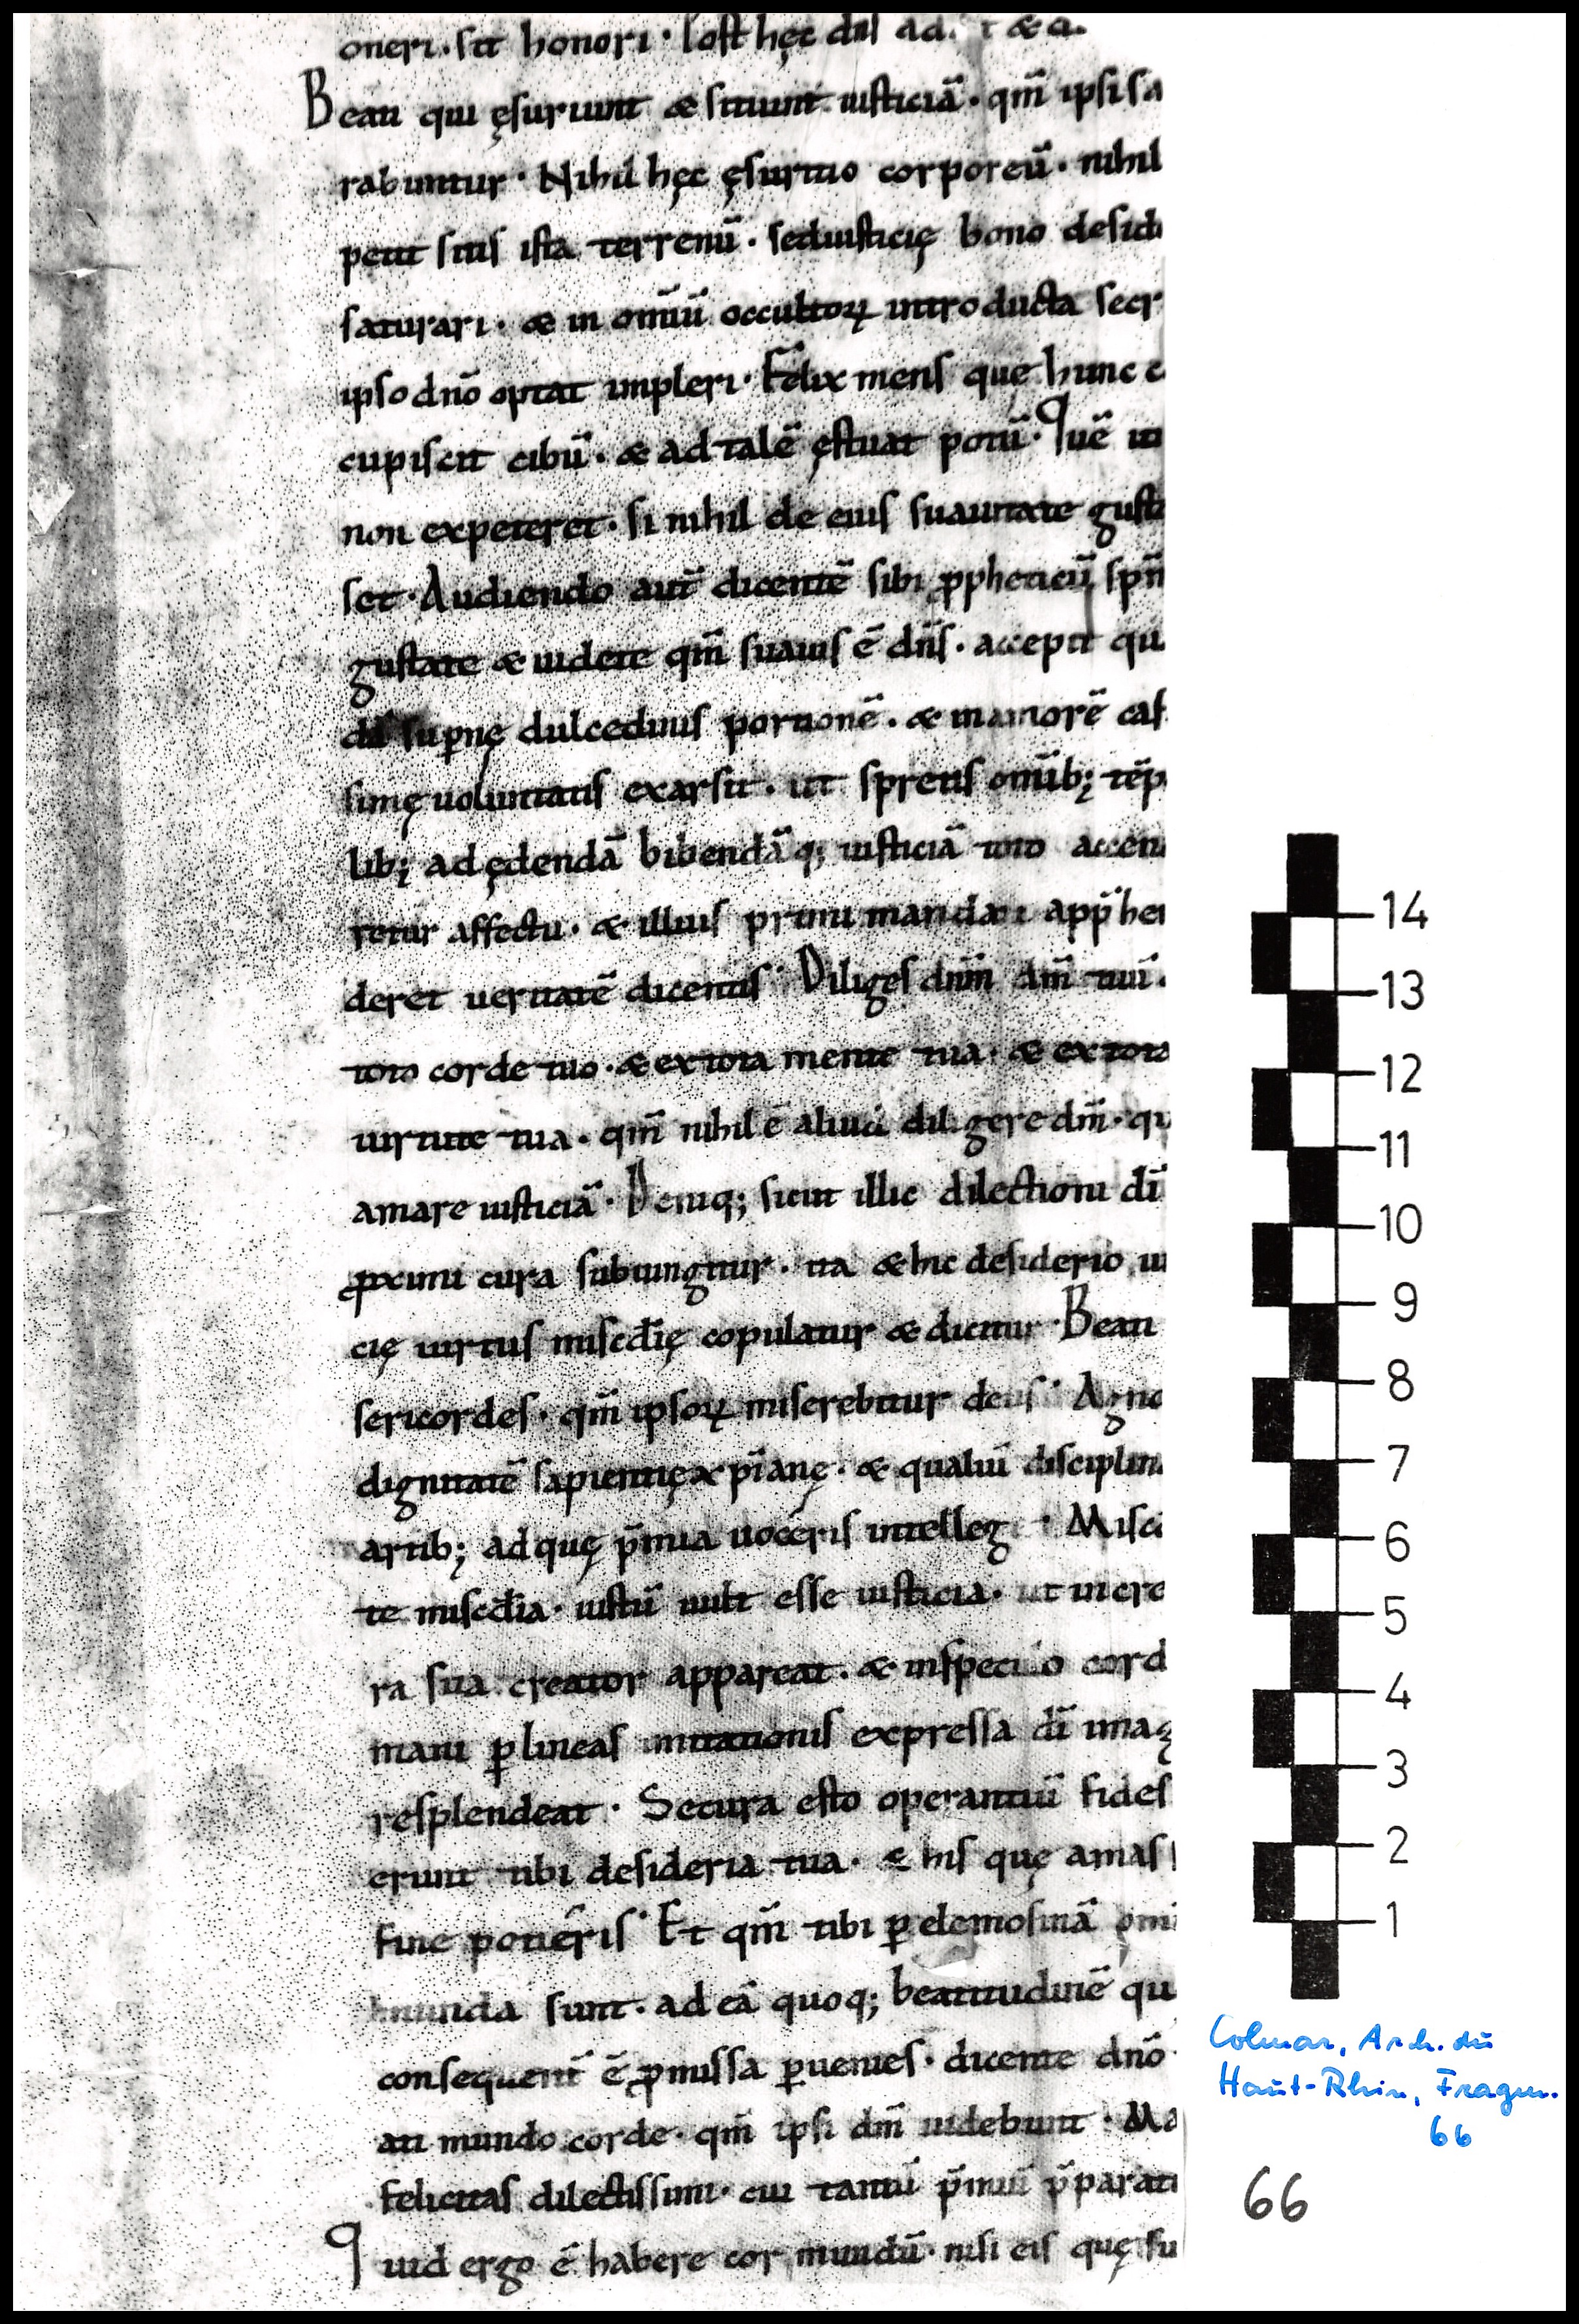 oneri · sit honori · Post hęc dn̄s ad
Beati qui ęsuriunt & sitiunt iusticiā · qm̄ ipsi sa
rabuntur · Nihil hęc ęsuritio corporeū · nihil
petit sitis ista terrenū · sed iusticię bono desid
saturari · & in omīū occultoꝝ introducta secr
ipso dn̄o optat impleri · Felix mens quę hunc c
cupiscit cibū · & ad talē ęstuat potū · Quē
non expeteret · si nihil de eius suauitate gusta
set · Audiendo aut̄ dicentē sibi ꝓpheticū spm̄
gustate & uidete qm̄ suauis ē dn̄s · accepit qu
dā supnę dulcedinis portionē · & in amorē cas
simę uoluntatis exarsit · ut spretis omīb; tēp
lib; ad ędendā bibendāq; iusticiā toto accen
retur affectu · & illius primi mandati app̄hen
deret ueritatē dicentis · Diliges dn̄m dm̄ tuū ·
toto corde tuo · & ex tota mente tua · & ex tota
uirtute tua · qm̄ nihil ē aliud diligere dm̄ · qu
amare iusticiā · Deniq; sicut illic dilectioni dī
ꝓximi cura subiungitur · ita & hic desiderio iu
cię uirtus misc̄dię copulatur & dicitur · Beati
sericordes · qm̄ ipsoꝝ miserebitur deus · Agno
dignitatē sapientię xp̄ianę · & qualiū disciplina
artib; ad quę p̄mia uoceris intelleg · Misc̄
te misc̄dia · iustū uult esse iusticia · ut in cre
ra sua creator appareat · & in speculo cord
mani ꝑ lineas imitationis expressa dī imag
resplendeat · Secura esto operantiū fides
erunt tibi desideria tua · & his quę amas
fine potieris · Et qm̄ tibi ꝑ elemosinā omi
munda sunt · ad eā quoq; beatitudinē qu
consequent̄ ē ꝓmissa ꝑuenies · dicente dn̄o ·
ati mundo corde · qm̄ ipsi dm̄ uidebunt · Ma
felicitas dilectissimi · cui tantū p̄miū p̄parat
Quid ergo ē habere cor mundū · nisi eis quę su
14
13
12
11
10
9
8
7
6
5
4
3
2
1
Colmar, Arch. du
Haut-Rhin, Fragm.
66
66